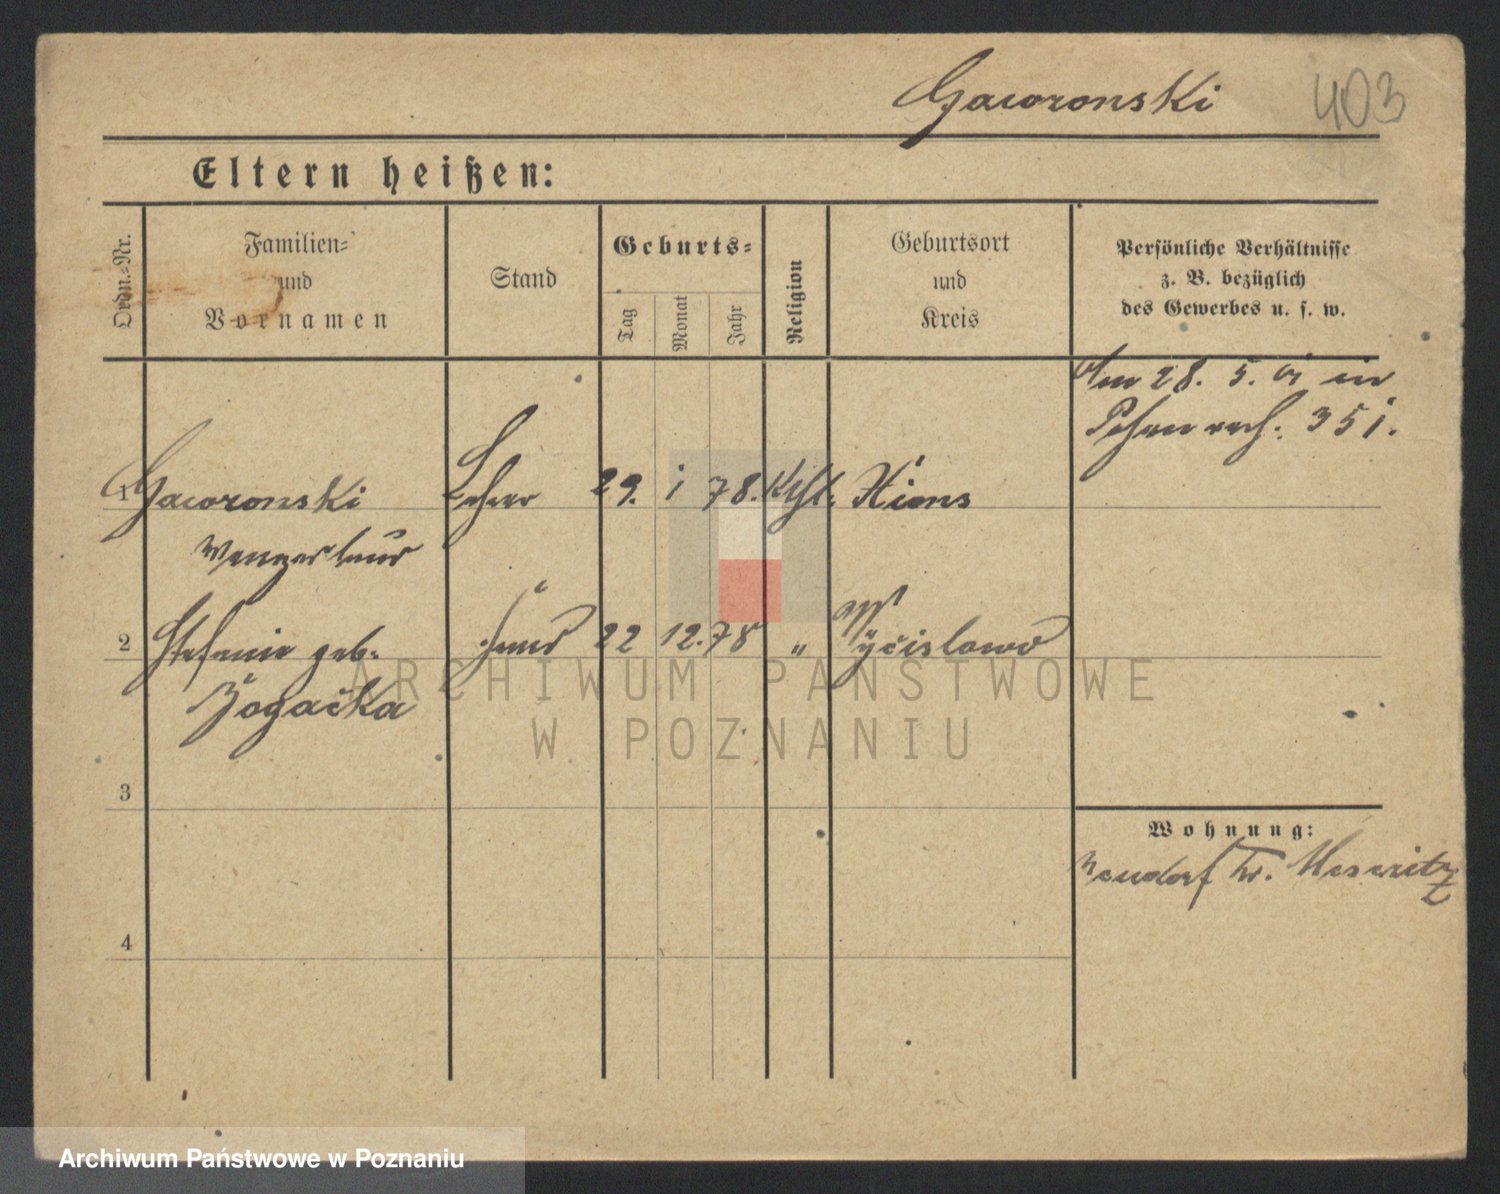 Gaworonski 403
Eltern heißen:
Ordn.-Nr.
Familien-
und
Vornamen
Stand
Geburts-
Tag
Monat
Jahr
Religion
Geburtsort
und
Kreis
Persönliche Verhältnisse
z. B. bezüglich
des Gewerbes u. s. w.
Am 28. 5. 01 in
Posen verh. 351.
1 Gaworonski Lehrer 29. 1 78. Kthl. Xions
2 Stefanie geb. 22 12. 78 "
Wohnung:
Kr. Meseritz
3
4
ARCHIWUM PAŃSTWOWE
W POZNANIU
Archiwum Państwowe w Poznaniu